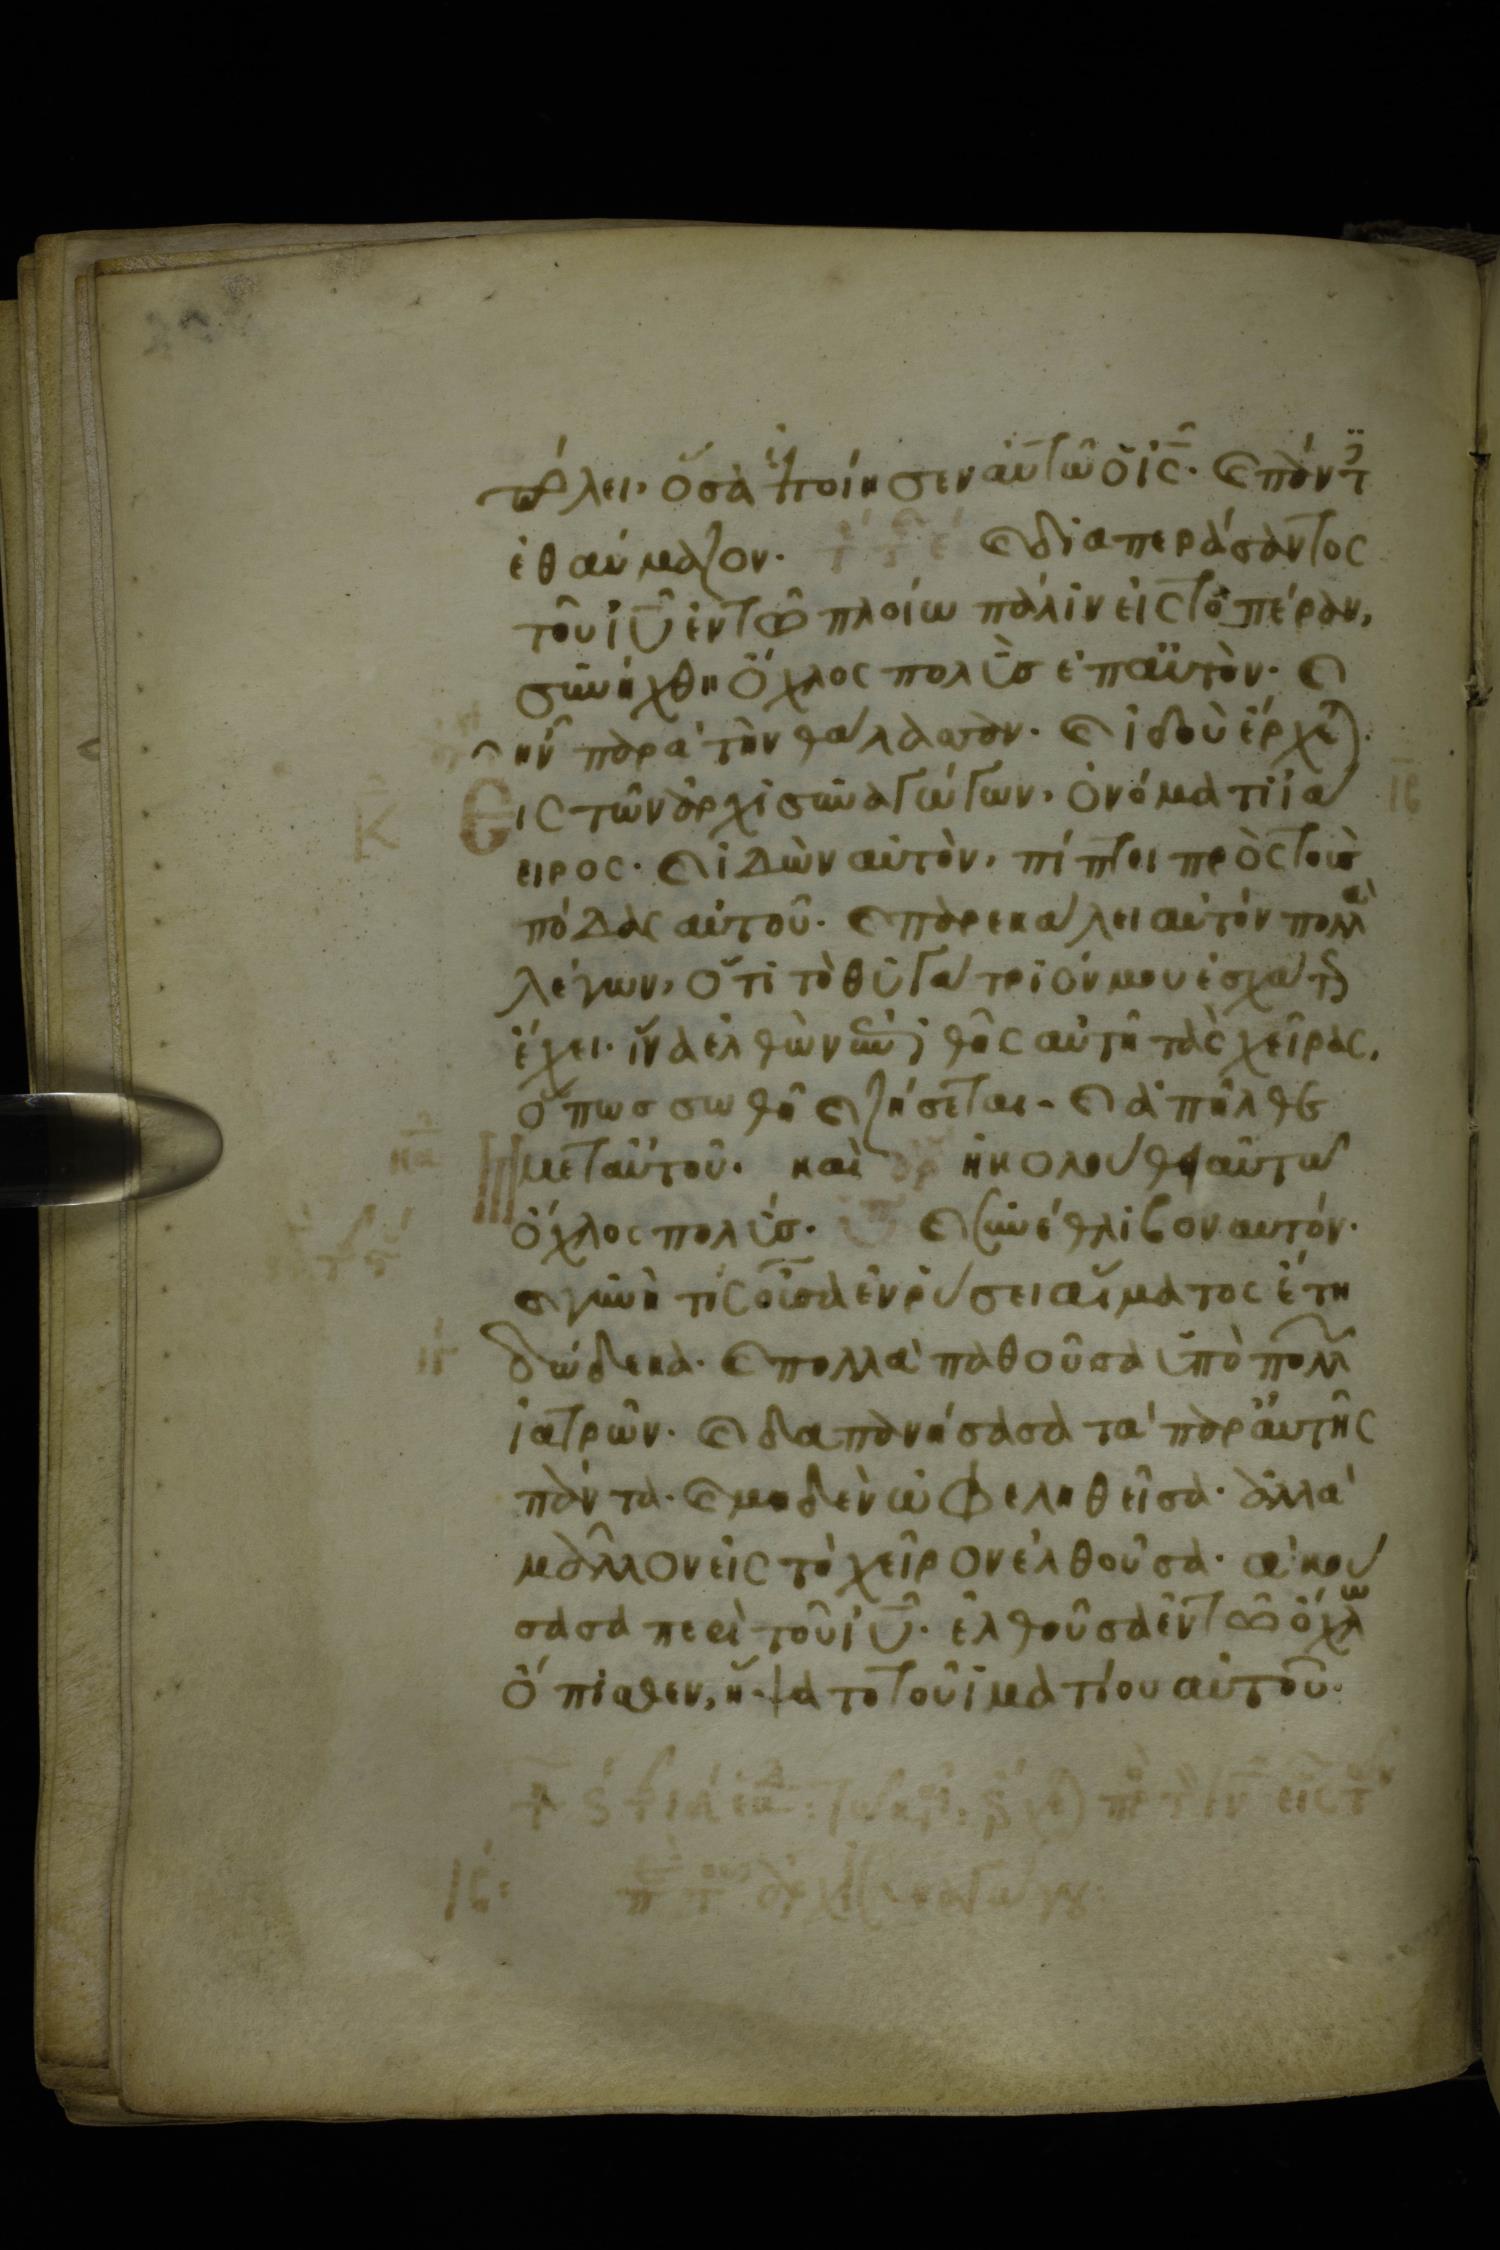 πόλει· ὅσα ἐποίησεν αὐτῶ ὁ ις· κ πάντ
ἐθαύμαζον· κ διαπεράσαντος
τοῦ ιυ ἐν τῶ πλοίω πάλιν εἰς τὸ πέραν,
συνήχθη ὄχλος πολὺσ ἐπ αὐτὸν· κ
ἦν παρὰ τὴν θάλασσαν· κ ἰδοὺ ἔρχε
εις τῶν ἀρχισυναγώγων, ὀνόματι ϊά
ειρος· κ ἰδὼν αὐτὸν, πίπτει πρὸς τοὺσ
πόδας αὐτοῦ· κ παρεκάλει αὐτὸν πολλὰ
λέγων, ὅτι τὸ θυγάτριόν μου ἐσχάτ
ἔχει· ἵνα ἐλθὼν ἐπιθῆς αὐτῆ τὰς χεῖρας,
ὅπωσ σωθῆ κ ζήσεται· κ ἀπῆλθε
μετ αὐτοῦ· καὶ ἠκολούθει αὐτῶ
ὄχλος πολύσ· κ συνέθλιβον αυτόν·
κ γυνή τις οὖσα ἐν ρύσει αἵματος ἔτη
δώδεκα· κ πολλὰ παθοῦσα ὑπὸ πολλ
ἰατρῶν· κ δαπανήσασα τὰ παρ αὐτῆς
πάντα· κ μηδὲν ὠφεληθεῖσα· ἀλλὰ
μᾶλλον εἰς τὸ χεῖρον ἐλθοῦσα· ἀκού
σασα περὶ τοῦ ιυ· ἐλθοῦσα ἐν τῶ ὄχλω
ὄπισθεν, ἥψατο τοῦ ἱματίου αὐτοῦ·